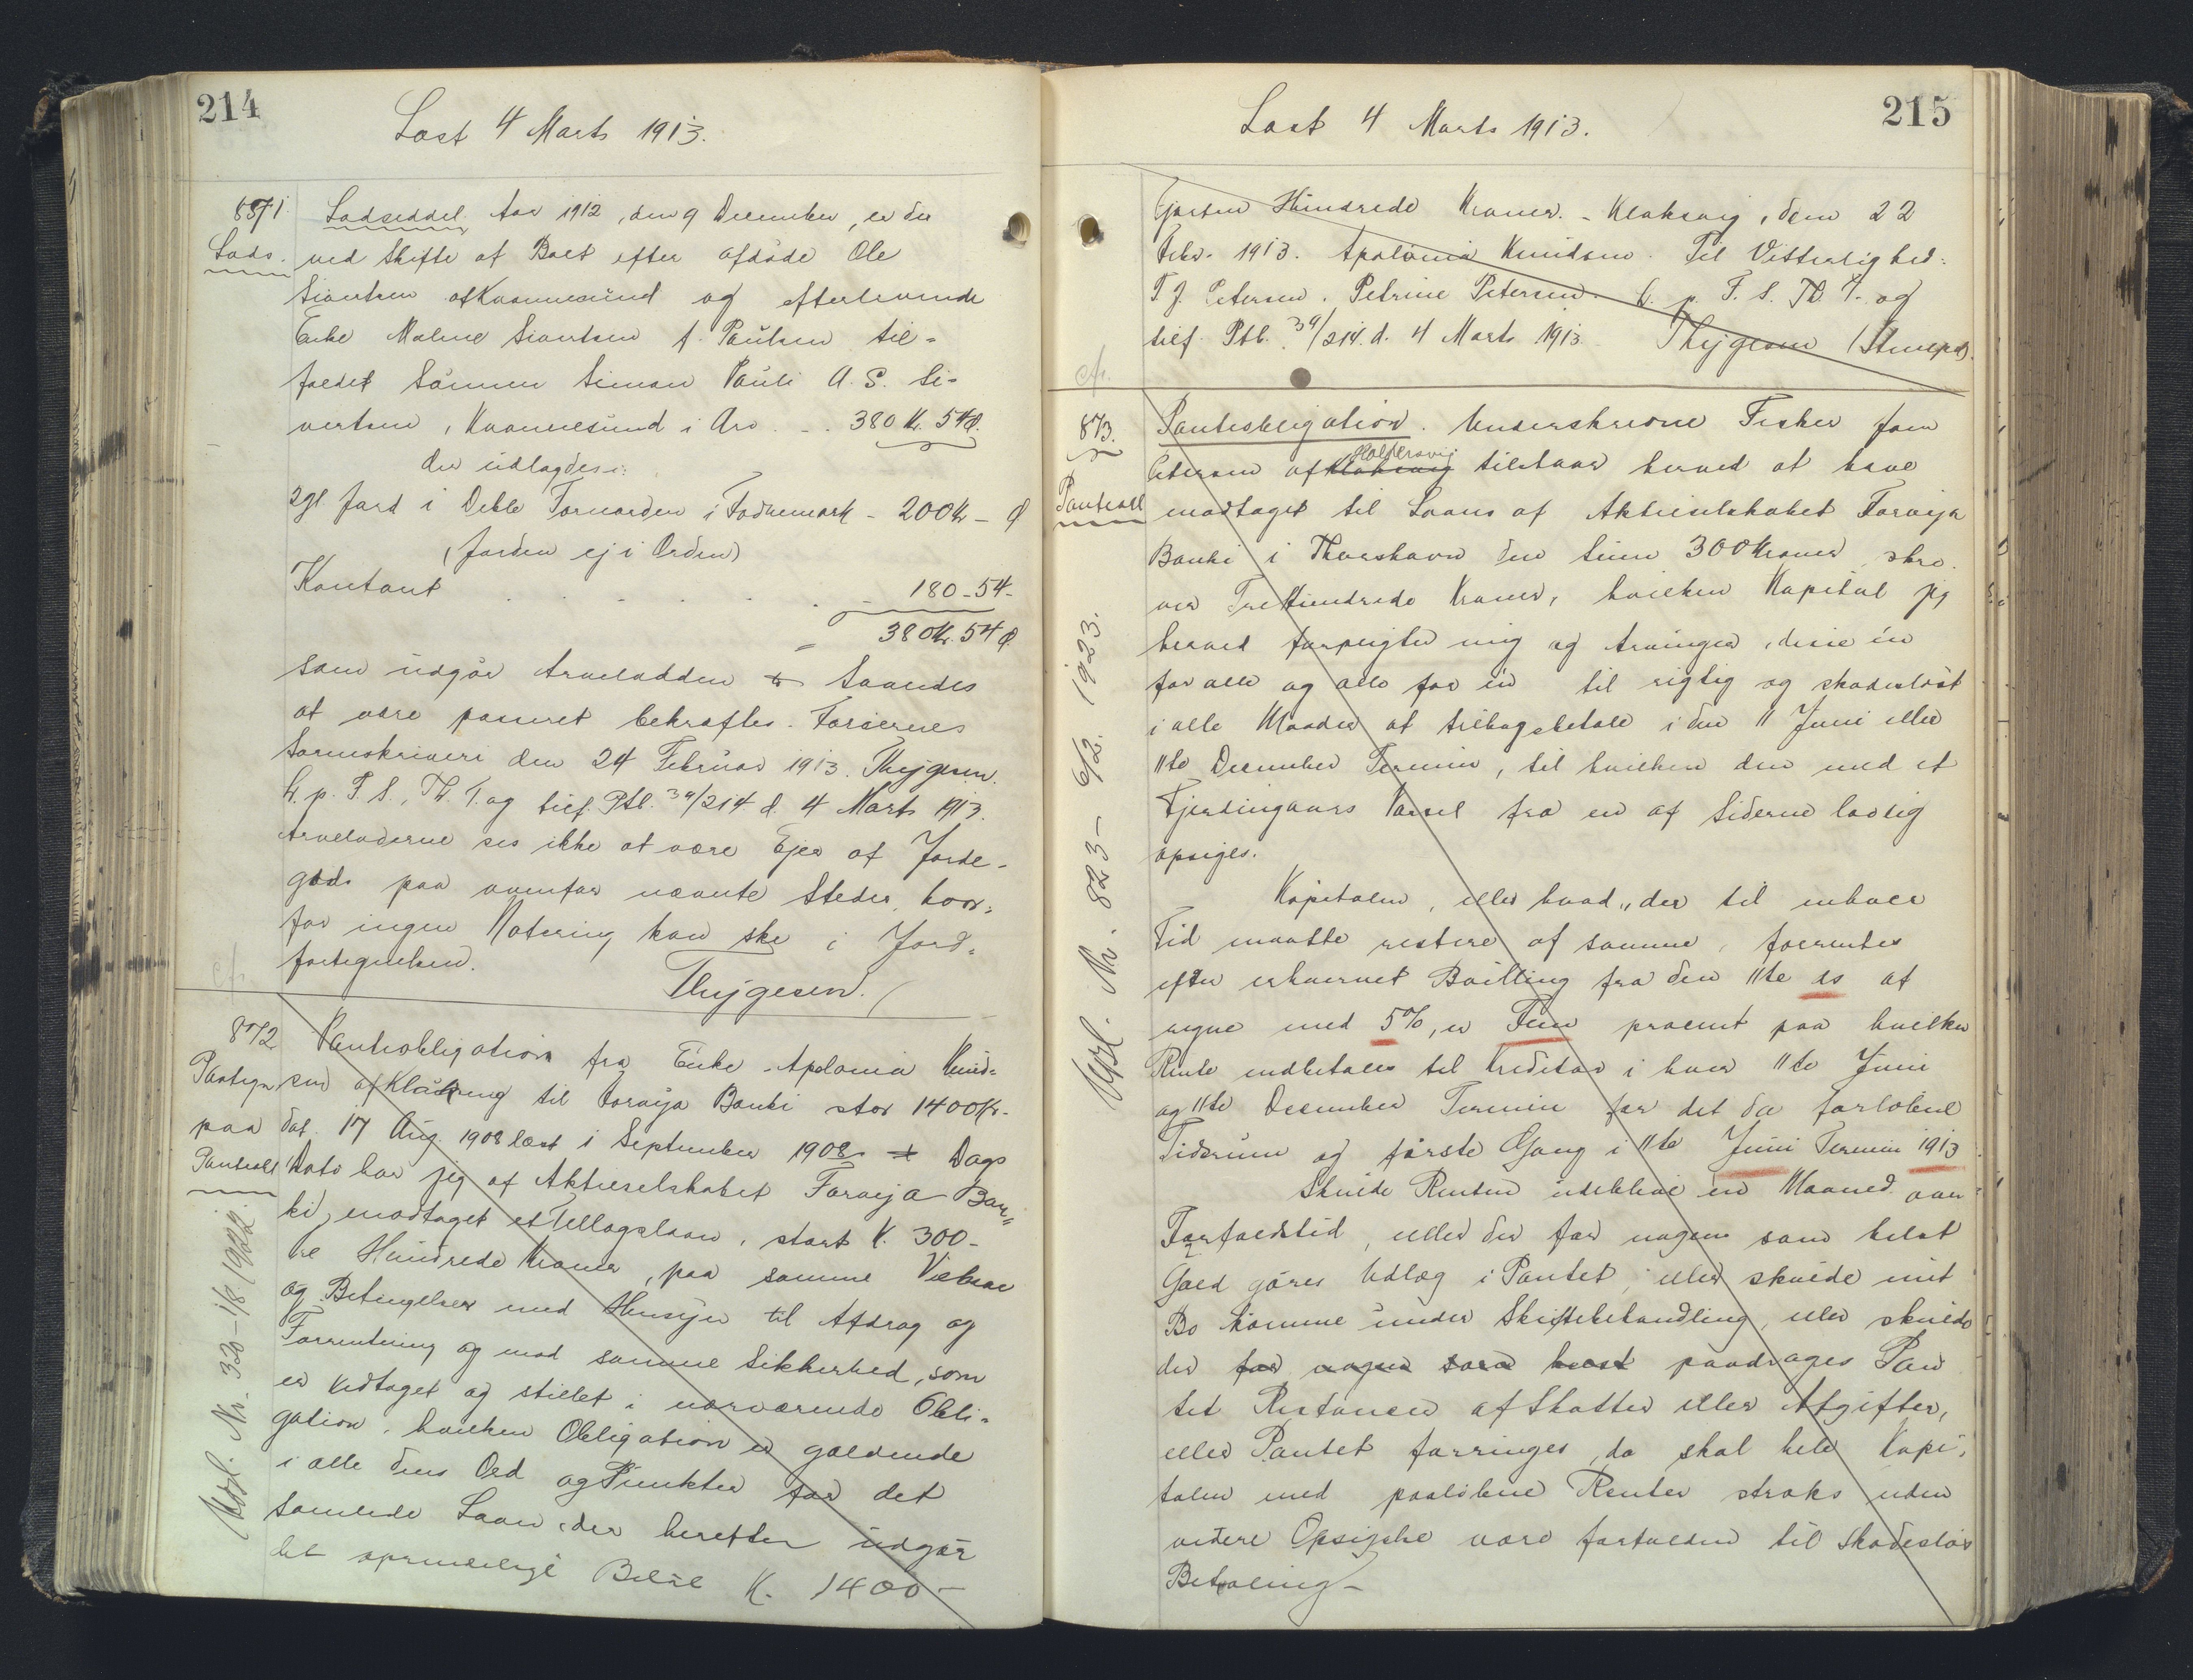 214
Læst 4 Marts 1913.
871.
Lods.
Lodseddel. Aar 1912, den 9 December, er der
ved Skifte af Boet efter afdøde Ole
Sivertsen af Kvannesund og efterlevende
Enke Maline Sivertsen f. Paulsen til-
faldet Sønnen Simon Pauli A. S. Si-
vertsen, Kvannesund i Arv - .. 380 K. 54 Ø.
der udlagdes:
2 gl. Jord i Deble Fornorden i Fodnemark - 200 Kr - Ø
(Jorden ej i Orden)
Kontant . . . . . . - 180 - 54 -
= 380 Kr. 54 Ø.
som udgør Arvelodden Saaledes
at være passeret bekræftes. Færøernes
Sorenskriveri den 24 Februar 1913. Thygesen.
h. p. F. S., Th. T. og tilf. Ptl. 39/214 d. 4 Marts 1913.
Arveladerne ses ikke at være Ejer af Jorde-
gods paa ovenfor nævnte Steder, hvor-
for ingen Notering kan ske i Jord-
fortegnelsen.
Thygesen. /
cfr.
872
Paategn
paa
Panteobl
Panteobligation fra Enke Apolonia Knud-
sen af Klaksvig til Føroyja Banki stor 1400 Kr.
dat. 17 Aug. 1908 læst i September 1908 Dags
Dato har jeg af Aktieselskabet Føroyja Ban-
ki, modtaget et Tillægslaan, stort K. 300 -
tre Hundrede Kroner, paa samme Vilkaar
og Betingelser med Hensyn til Afdrag og
Forrentning og mod samme Sikkerhed, som
er vedtaget og stillet i nærværende Obli-
gation, hvilken Obligation er gældende
i alle dens Ord og Punkter for det
samlede Laan, der herefter udgør
det oprindelige Beløb K. 1400 -
Udsl. Nr. 320 - 1/8 1922.
215
Læst 4 Marts 1913.
Fjorten Hundrede Kroner. - Klaksvig, den 22
Febr. 1913. Apolonia Knudsen. Til Vitterlighed:
T J. Petersen. Petrine Petersen. h. p. F. S. Th. T. og
tilf. Ptb. 39/214. d. 4 Marts 1913. Thygesen /Stempel).
cfr.
873.
Panteobl
Panteobligation. Underskrevne Fisker Joen
Haldersvig
Petersen af Klaksvig tilstaar herved at have
modtaget til Laans af Aktieselskabet Føroyja
Banki i Thorshavn den Sum 300 Kroner skri-
ver Tre Hundrede Kroner, hvilken Kapital jeg
herved forpligter mig og Arvinger, disse én
for alle og alle for én til rigtig og skadesløst
i alle Maader at tilbagebetale i den 11 Juni eller
11te December Termin, til hvilken den med et
Fjerdingaars Varsel fra en af Siderne lovlig
opsiges.
Kapitalen, eller hvad der til enhver
Tid maatte restere af samme, forrentes
efter erhvervet Bevilling fra den 11te ds at
regne med 5%, er Fem procent paa hvilken
Rente indbetales til Kreditor i hver 11te Juni
og 11te December Termin for det da forløbne
Tidsrum og første Gang i 11te Juni Termin 1913
Skulde Renten udeblive en Maaned over
Forfaldstid, eller der for nogen som helst
Gæld gøres Udlæg i Pantet, eller skulde mit
Bo komme under Skiftebehandling, eller skulde
der for nogen som helst paadrages Pan
tet Restancer af Skatter eller Afgifter,
eller Pantet forringes, da skal hele Kapi-
talen med paaløbne Renter straks uden
videre Opsigelse være forfalden til skadesløs
Betaling -
Udsl. Nr. 823 - 6/2. 1923.